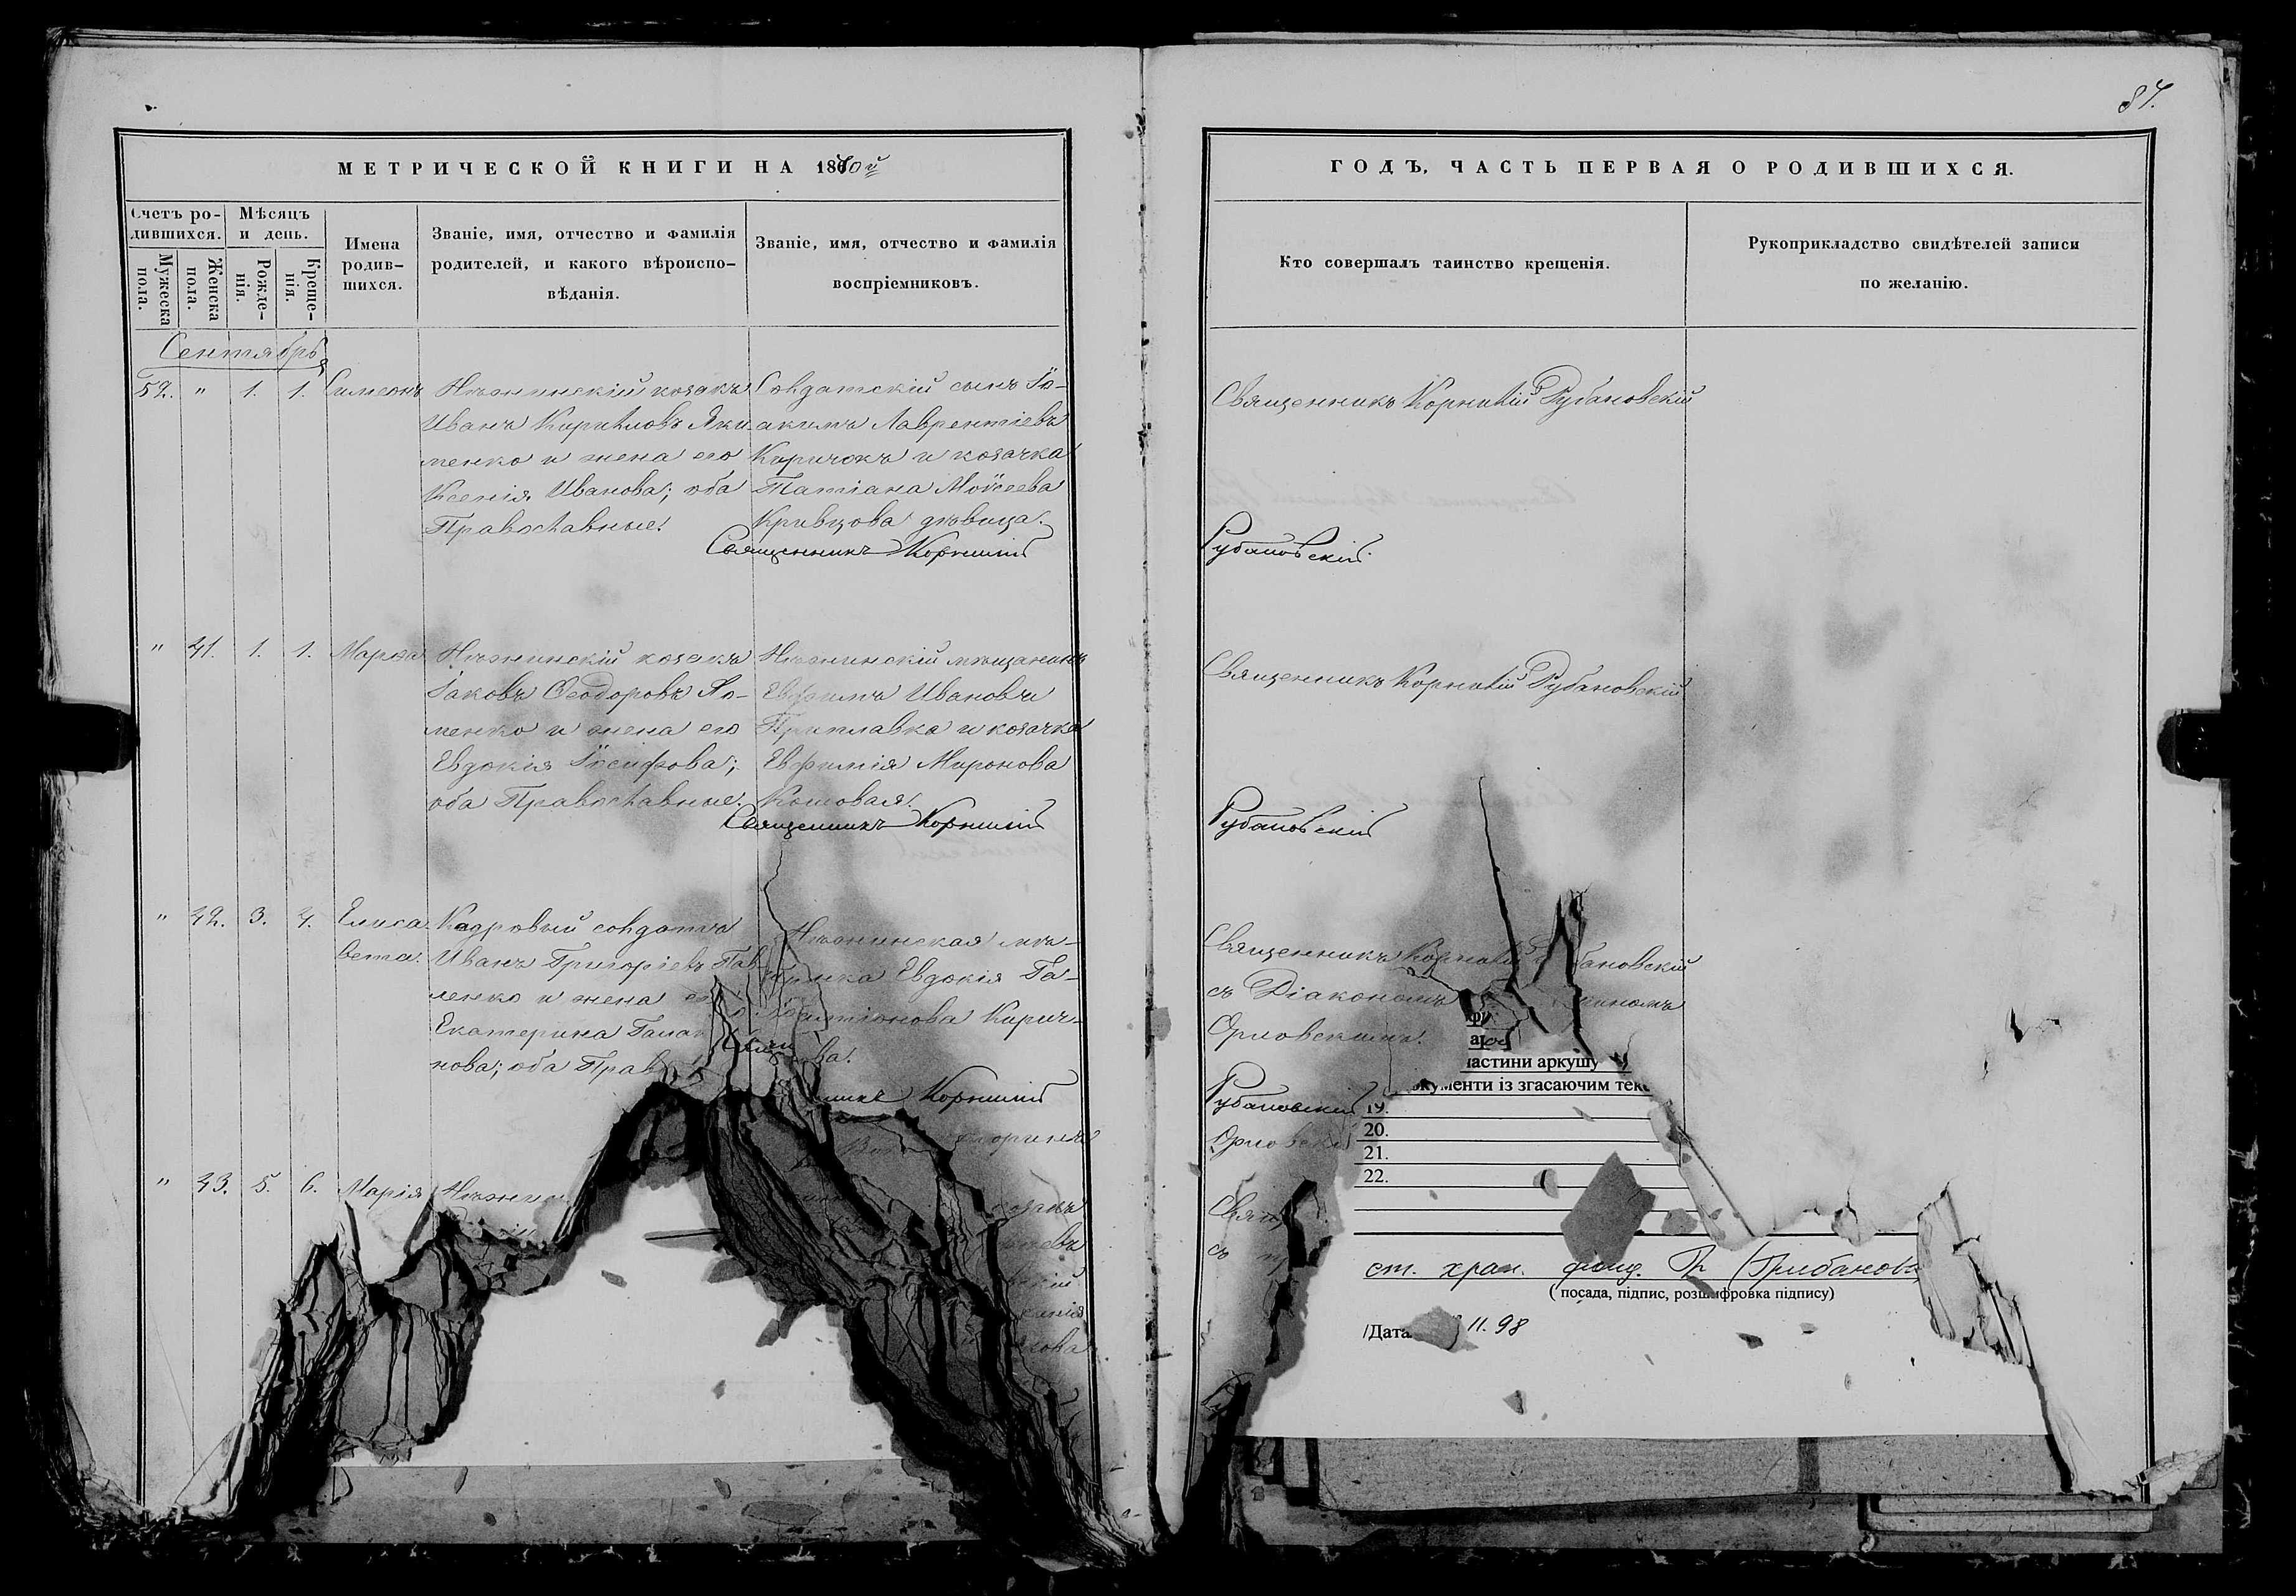 87.
МЕТРИЧЕСКОЙ КНИГИ НА 1870й
Счетъ ро-
дившихся.
Мужеска
пола.
Женска
пола.
Мѣсяцъ
и день.
Рожде-
нія.
Креще-
нія.
Имена
родив-
шихся.
Званіе, имя, отчество и фамилія
родителей, и какого вѣроиспо-
вѣданія.
Званіе, имя, отчество и фамилія
воспріемниковъ.
Сентябрь
52. " 1. 1. Симеонъ
Нѣжинскій козакъ
Иванъ Кириловъ Яки
менко и жена его
Ксенія Иванова; оба
Православные.
Солдатскій сынъ Іо-
акимъ Лаврентіевъ
Киричокъ и козачка
Татіана Моѵсеева
Кривцова дѣвица.
Священникъ Корнилій
" 41. 1. 1. Марѳа
Нѣжинскій козакъ
Іаковъ Ѳеодоровъ
менко и жена его
Евдокія Іосифова;
оба Православные.
Нѣжинскій мѣщанинъ
Евфимъ Ивановъ
Приплавка и козачка
Евфимія Миронова
Котовая.
Священникъ Корнилій
" 42. 3. 4. Елиса
вета.
Кадровый солдатъ
Иванъ Григоріевъ Пав
ленко и жена его
Екатерина
нова; оба Прав
Нѣжинская мѣ-
Евдокія Га-
Кирич-
ва.
Корнилій
" 43. 5. 6. Марія
Нѣжин
ГОДЪ, ЧАСТЬ ПЕРВАЯ О РОДИВШИХСЯ.
Кто совершалъ таинство крещенія.
Рукоприкладство свидѣтелей записи
по желанію.
Священникъ Корнилій Рубановскій
Рубановскій.
Священникъ Корнилій Рубановскій
Рубановскій
Священникъ Корнилій бановскій
съ Діакономъ
Орловскимъ.
Рубановскій
Орловскій
Свящ
съ
частини аркушу
документи із згасаючим тек
19.
20.
21.
22.
ст. хран. фонд. (Грибанова
( посада, підпис, розшифровка підпису)
/Дата 11.98